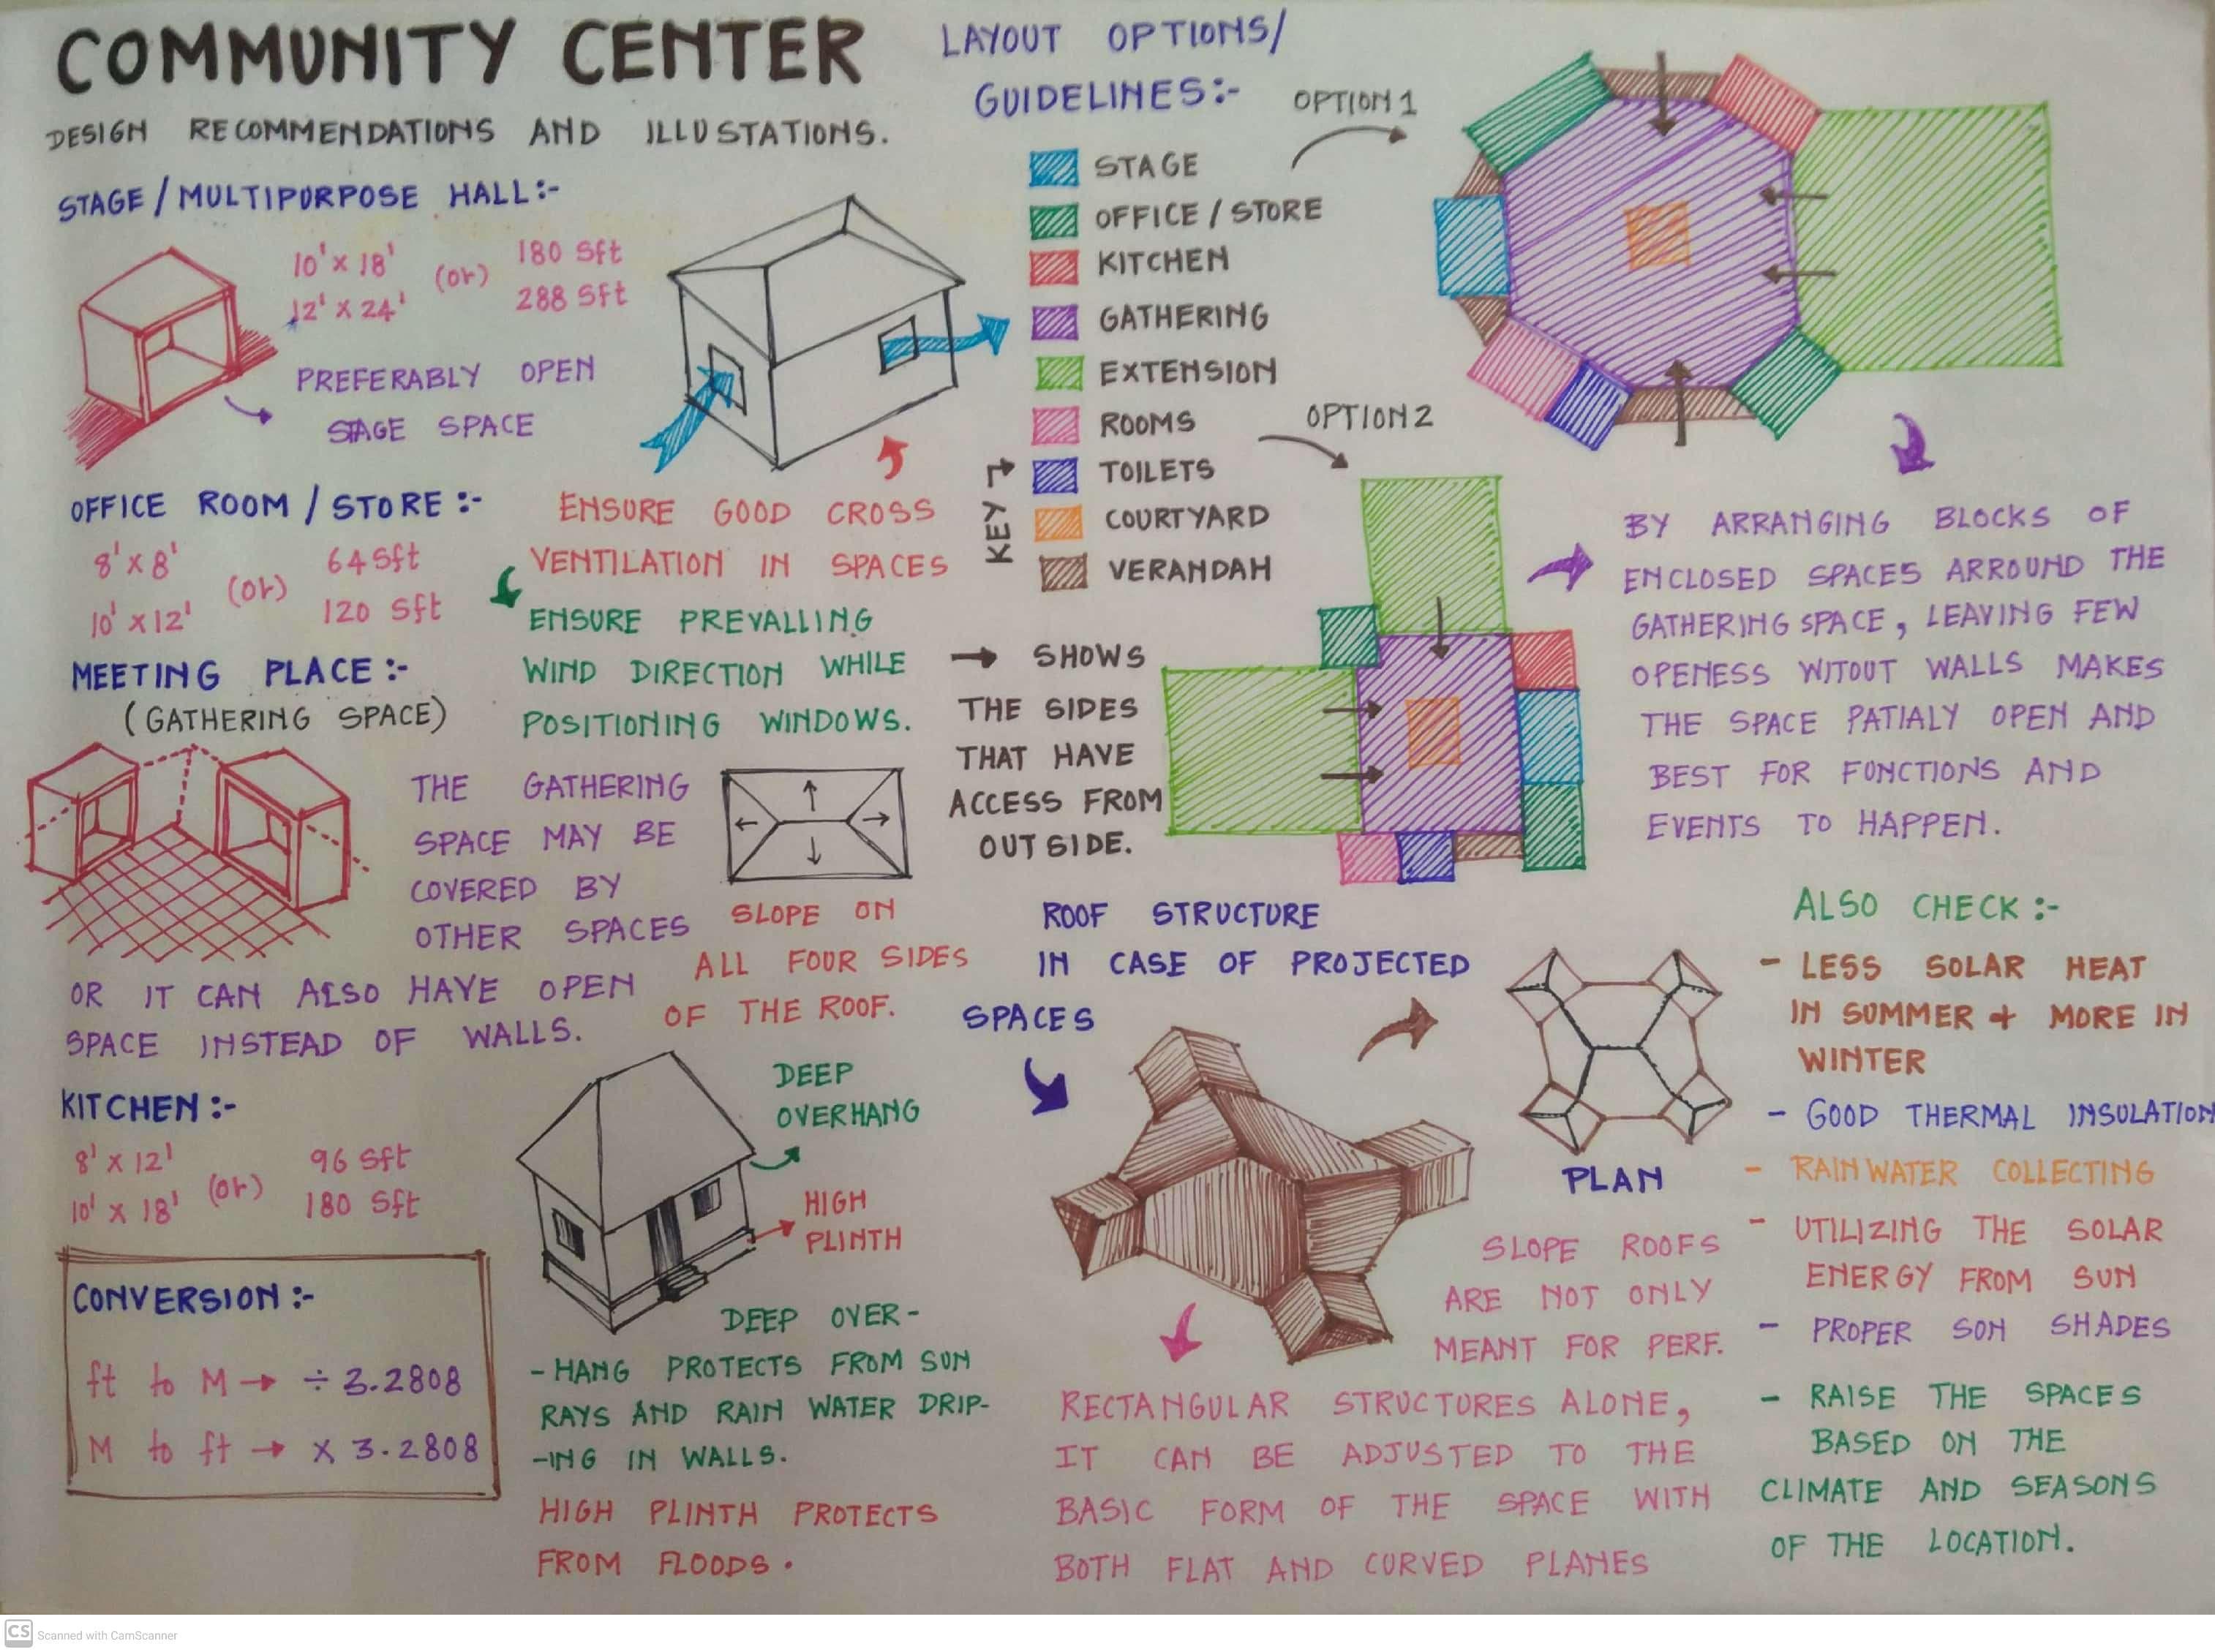 COMMUNITY CENTER
DESIGN RECOMMENDATIONS AND ILLUSTATIONS.
STAGE / MULTIPURPOSE HALL:-
10' x 18' (or) 180 Sft
12' x 24' 288 Sft
PREFERABLY OPEN
STAGE SPACE
OFFICE ROOM / STORE :-
8' x 8' (or) 64 Sft
10' x 12' 120 Sft
MEETING PLACE :-
(GATHERING SPACE)
THE GATHERING
SPACE MAY BE
COVERED BY
OTHER SPACES
OR IT CAN ALSO HAVE OPEN
SPACE INSTEAD OF WALLS.
KITCHEN :-
8' x 12' (or) 96 Sft
10' x 18' 180 Sft
CONVERSION :-
ft to M → ÷ 3.2808
M to ft → x 3.2808
ENSURE GOOD CROSS
VENTILATION IN SPACES
ENSURE PREVALLING
WIND DIRECTION WHILE
POSITIONING WINDOWS.
SLOPE ON
ALL FOUR SIDES
OF THE ROOF.
DEEP
OVERHANG
HIGH
PLINTH
DEEP OVER-
-HANG PROTECTS FROM SUN
RAYS AND RAIN WATER DRIP-
-ING IN WALLS.
HIGH PLINTH PROTECTS
FROM FLOODS.
LAYOUT OPTIONS/
GUIDELINES:-
OPTION 1
STAGE
OFFICE / STORE
KITCHEN
GATHERING
EXTENSION
ROOMS
TOILETS
COURTYARD
VERANDAH
KEY
OPTION 2
→ SHOWS
THE SIDES
THAT HAVE
ACCESS FROM
OUTSIDE.
BY ARRANGING BLOCKS OF
ENCLOSED SPACES ARROUND THE
GATHERING SPACE, LEAVING FEW
OPENESS WITOUT WALLS MAKES
THE SPACE PATIALY OPEN AND
BEST FOR FUNCTIONS AND
EVENTS TO HAPPEN.
ROOF STRUCTURE
IN CASE OF PROJECTED
SPACES
PLAN
SLOPE ROOFS
ARE NOT ONLY
MEANT FOR PERF.
RECTANGULAR STRUCTURES ALONE,
IT CAN BE ADJUSTED TO THE
BASIC FORM OF THE SPACE WITH
BOTH FLAT AND CURVED PLANES
ALSO CHECK :-
- LESS SOLAR HEAT
IN SUMMER + MORE IN
WINTER
- GOOD THERMAL INSULATION
- RAIN WATER COLLECTING
- UTILIZING THE SOLAR
ENERGY FROM SUN
- PROPER SON SHADES
- RAISE THE SPACES
BASED ON THE
CLIMATE AND SEASONS
OF THE LOCATION.
CS Scanned with CamScanner